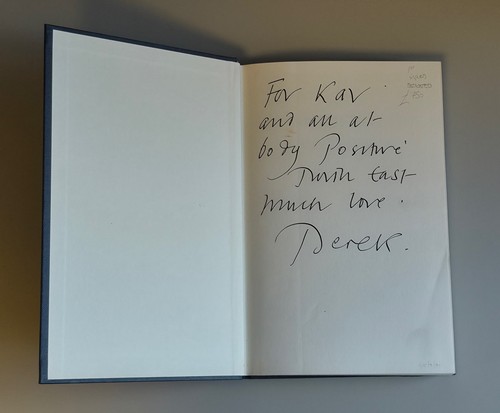 For Kav
and all at
body Positive
North East
much love.
Derek.
£750